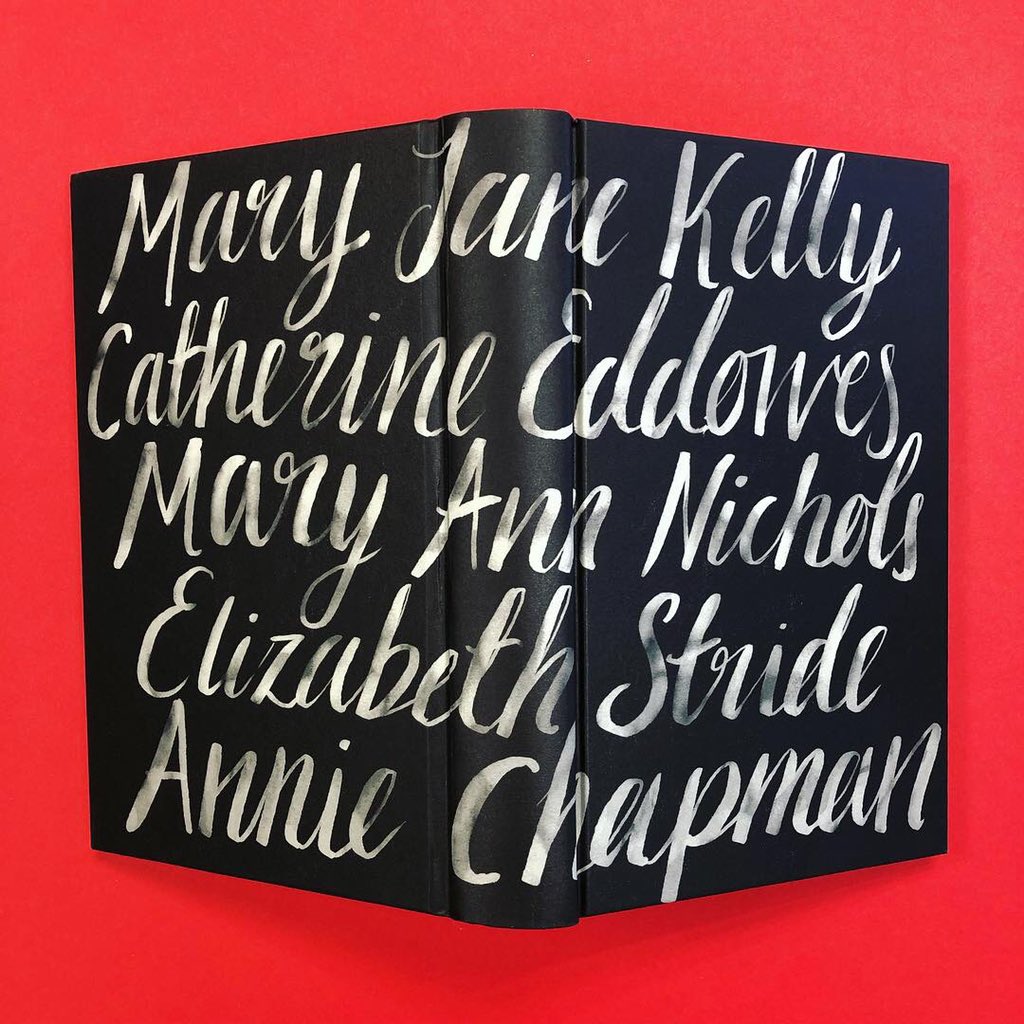 Mary Jane Kelly
Catherine Eddowes
Mary Ann Nichols
Elizabeth Stride
Annie Chapman